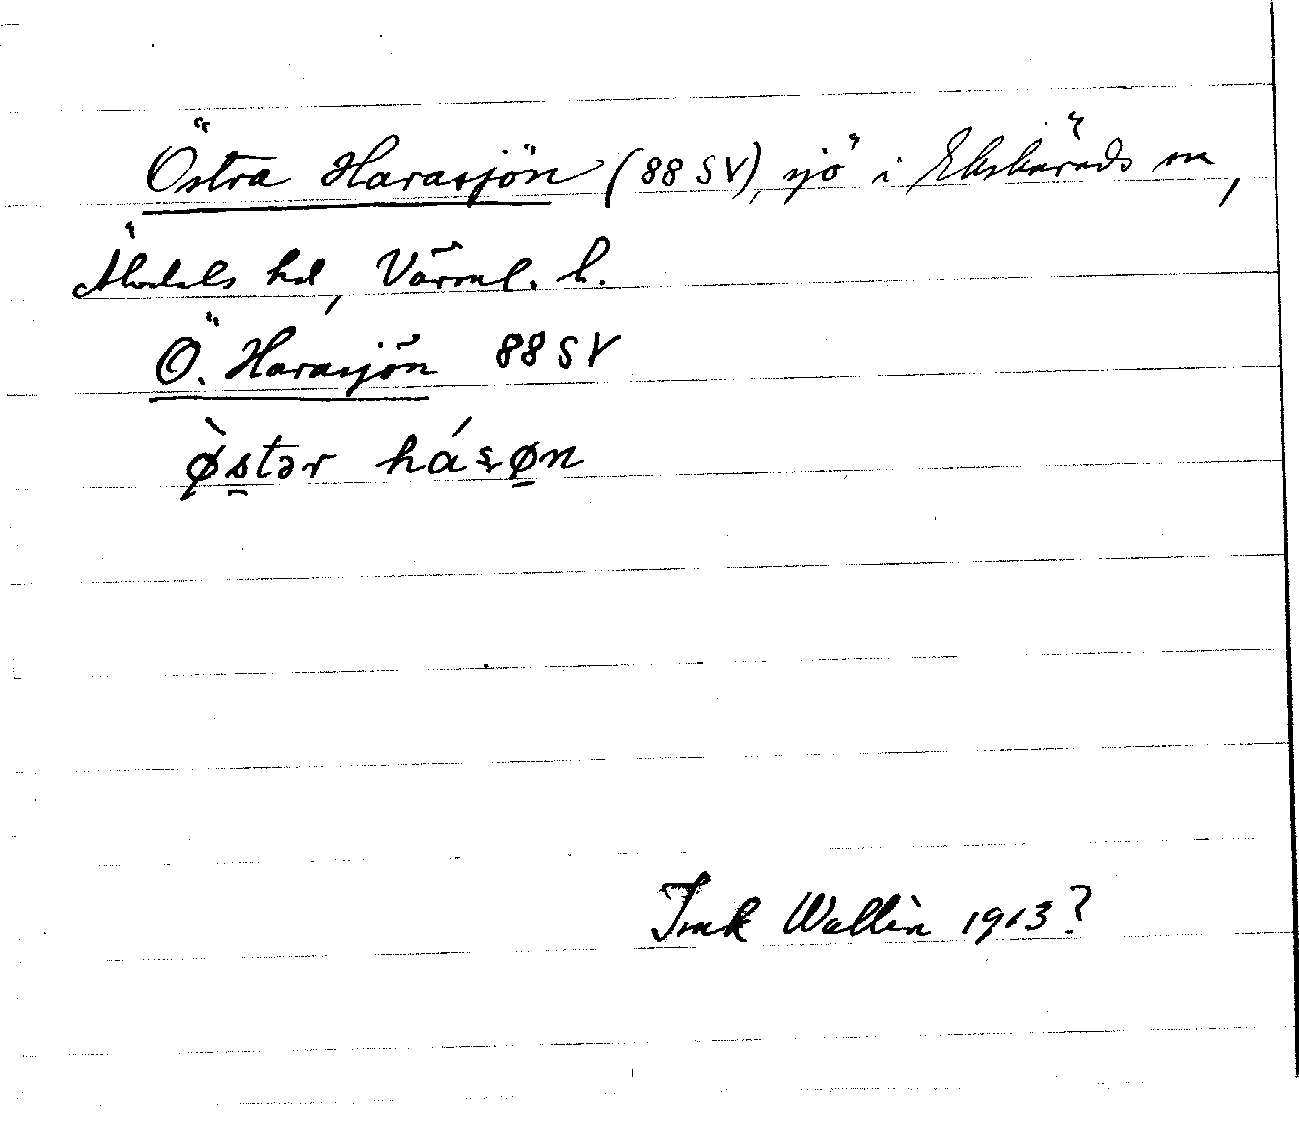 Östra Harasjön (88 SV), sjö i Ekshärads sn,
Älvdals hd, Värml. l.
Ö. Harasjön 88 SV
ø̀stər hásøn
Wallin 1913?